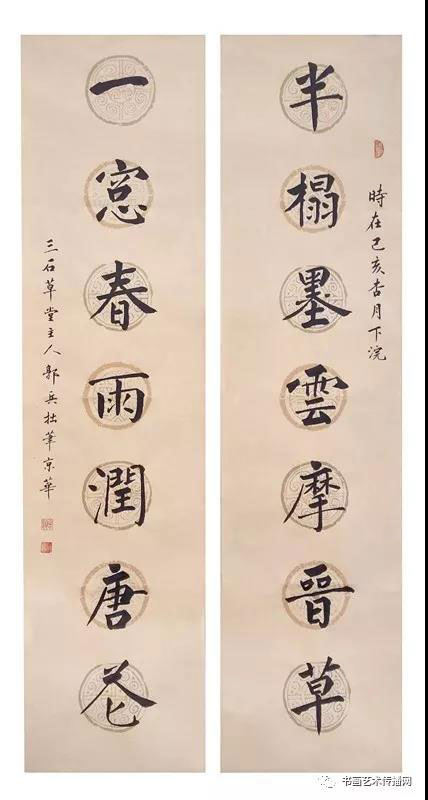 半榻墨雲摩晉草
時在己亥杏月下浣
一窓春雨潤唐花
三石草堂主人郭兵拙筆京華
书画艺术传播网